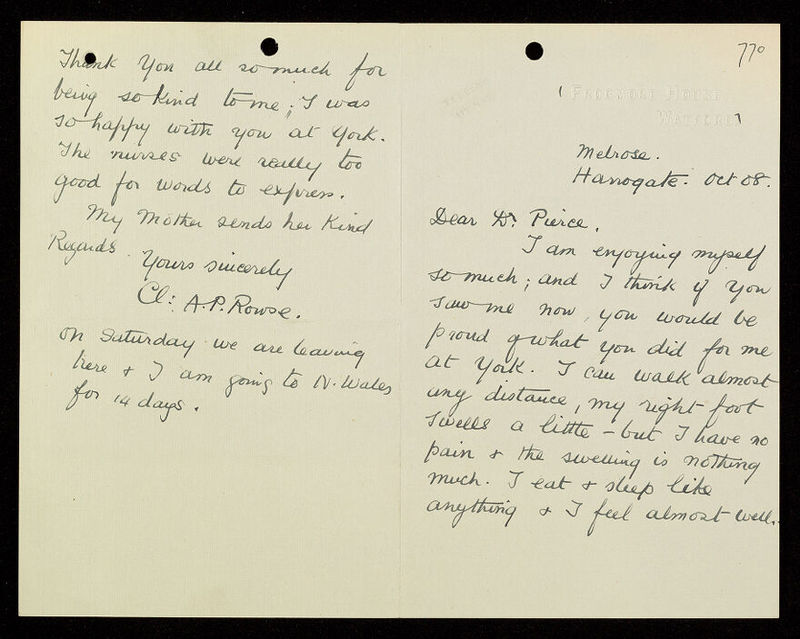 770
Melrose.
Harrogate. Oct 08.
Dear Dr Pierce,
I am enjoying myself
so much; and I think if you
saw me now, you would be
proud of what you did for me
at York. I can walk almost
any distance, my right foot
swells a little - but I have no
pain & the swelling is nothing
much. I eat & sleep like
anything & I feel almost well.
Thank you all so much for
being so kind to me; I was
so happy with you at York.
The nurses were really too
good for words to express.
My Mother sends her Kind
Regards.
Yours sincerely
Cl: A.P. Rowse.
On Saturday we are leaving
here & I am going to N. Wales
for 14 days.